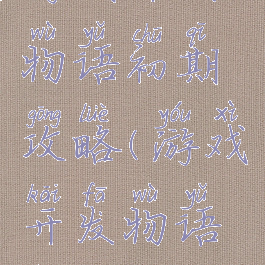 wù yǔ chū qī
物语初期
gōng lüè yóu xì
攻略(游戏
kāi fā wù yǔ
开发物语